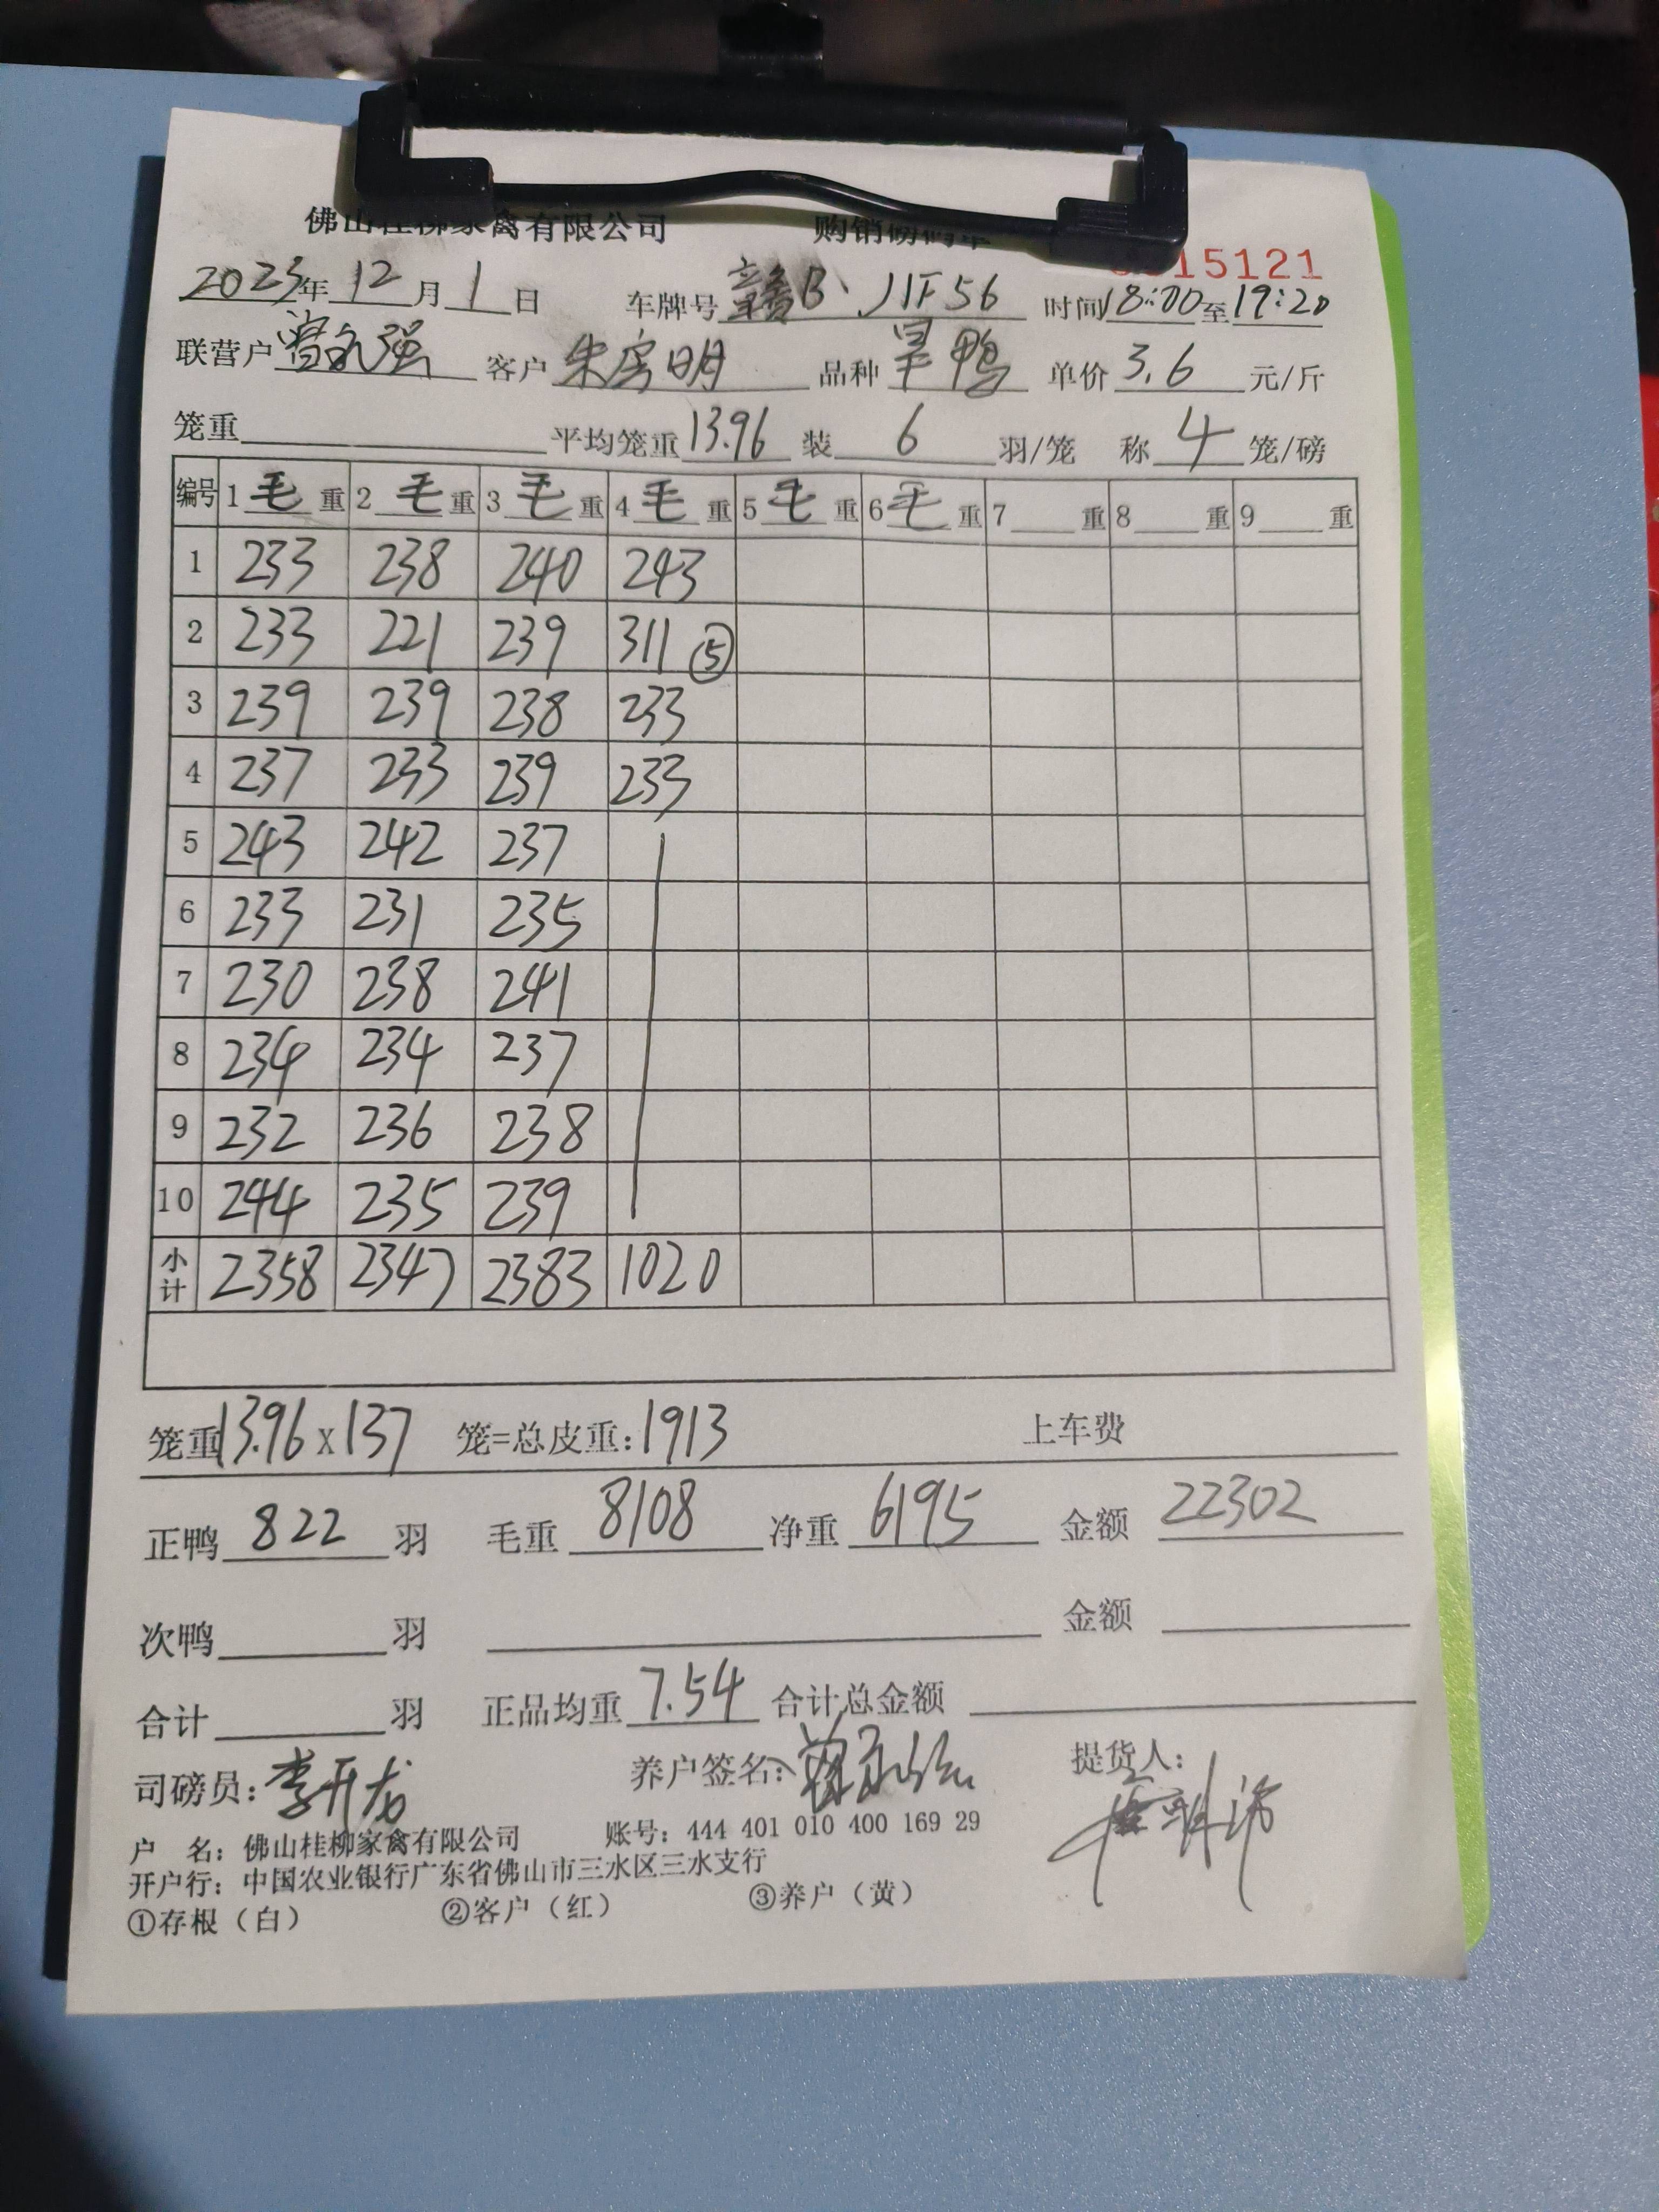 佛山桂柳家禽有限公司 购销磅码单
15121
2023年12月1日 车牌号赣B·J1F56 时间18:00至19:20
联营户曾永强 客户朱房明 品种旱鸭 单价3.6元/斤
笼重 平均笼重13.96 装6羽/笼 称4笼/磅
编号 1毛重 2毛重 3毛重 4毛重 5毛重 6毛重 7重 8重 9重
1 233 238 240 243
2 233 221 239 311 ⑤
3 239 239 238 233
4 237 233 239 233
5 243 242 237
6 233 231 235
7 230 238 241
8 234 234 237
9 232 236 238
10 244 235 239
小计 2358 2347 2383 1020
笼重13.96x137 笼=总皮重:1913 上车费
正鸭822羽 毛重8108 净重6195 金额22302
次鸭 羽 金额
合计 羽 正品均重7.54 合计总金额
司磅员:李开龙 养户签名: 提货人:
户 名:佛山桂柳家禽有限公司 账号:444 401 010 400 169 29
开户行:中国农业银行广东省佛山市三水区三水支行
①存根(白) ②客户(红) ③养户(黄)